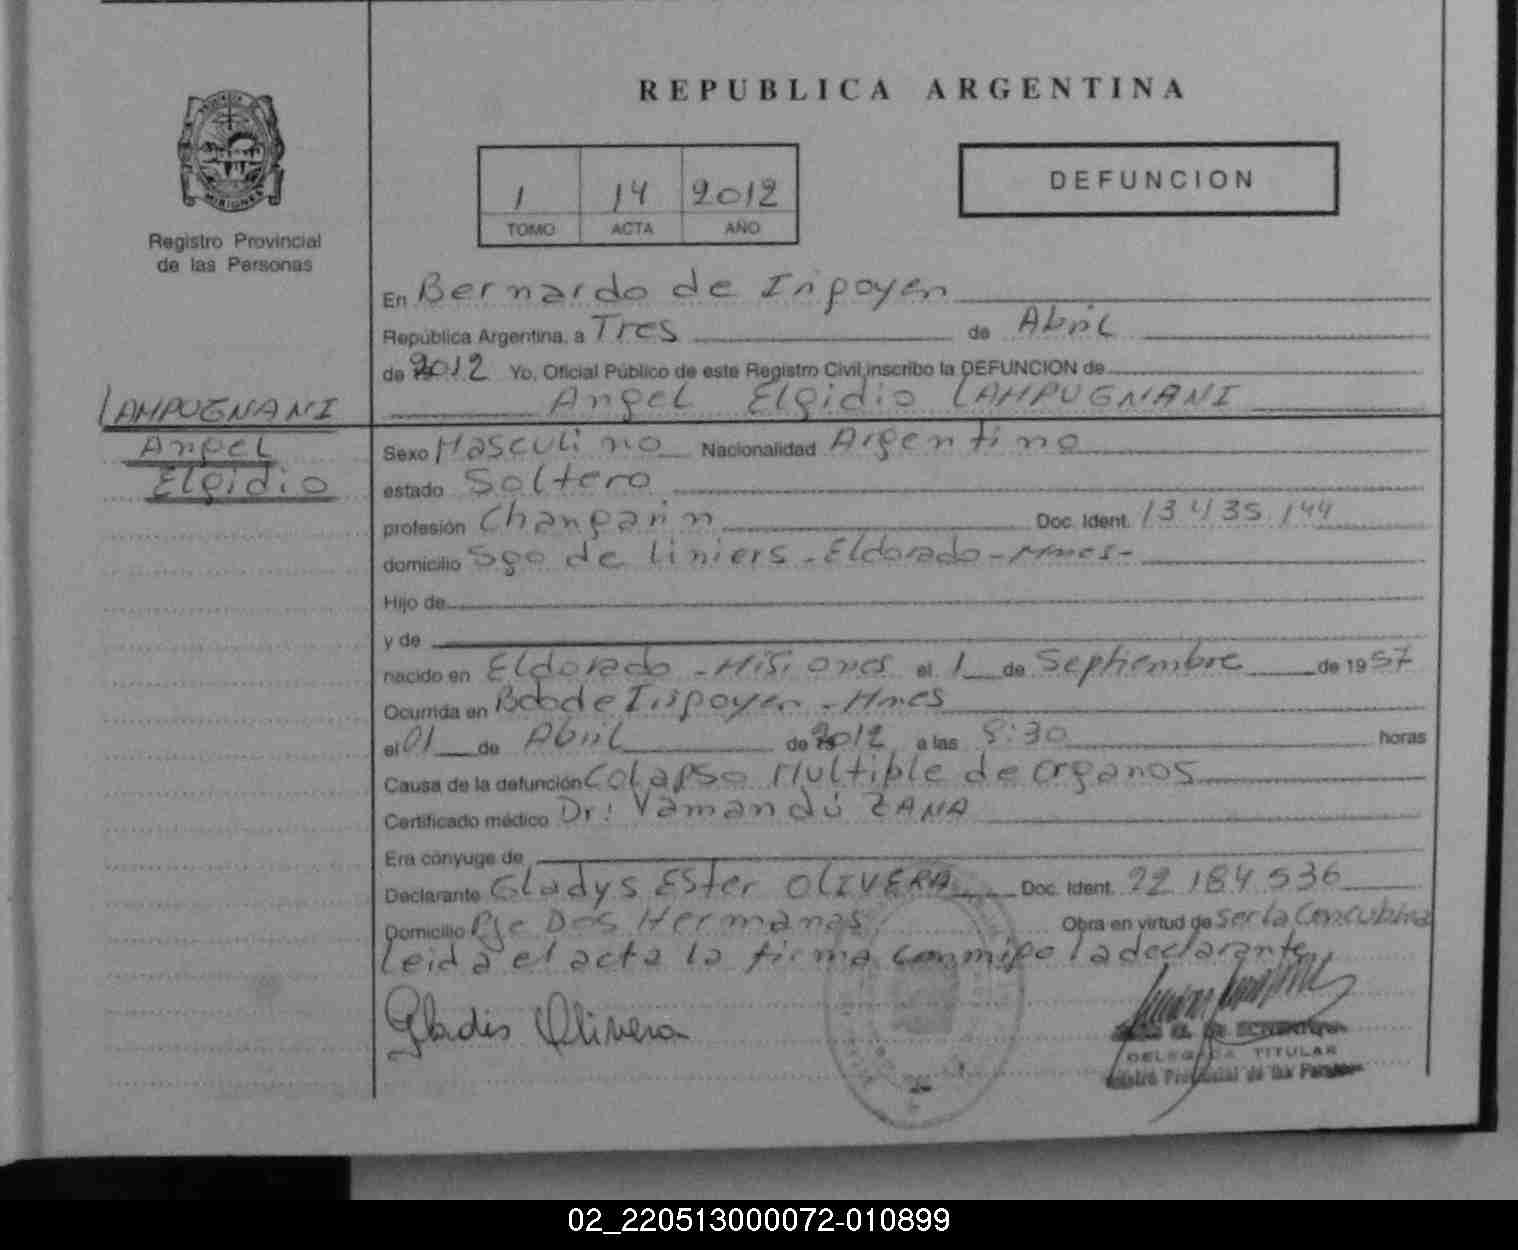 REPUBLICA ARGENTINA
PROVINCIA DE MISIONES
Registro Provincial
de las Personas
1 14 2012
TOMO ACTA AÑO
DEFUNCION
En Bernardo de Irigoyen
República Argentina, a Tres de Abril
de 2012 Yo, Oficial Público de este Registro Civil inscribo la DEFUNCION de
Angel Elgidio LAMPUGNANI
LAMPUGNANI
Angel
Elgidio
Sexo Masculino Nacionalidad Argentino
estado Soltero
profesión Changarin Doc. Ident. 13.435.144
domicilio Sgo de Liniers - Eldorado - Mnes -
Hijo de
y de
nacido en Eldorado - Misiones el 1 de Septiembre de 1957
Ocurrida en Bdo de Irigoyen - Mnes
el 01 de Abril de 2012 a las 8:30 horas
Causa de la defunción Colapso Multiple de organos
Certificado médico Dr: Yamandú ZANA
Era cónyuge de
Declarante Gladys Ester OLIVERA Doc. Ident. 22.184.536
Domicilio Pje Dos Hermanas Obra en virtud de ser la Concubina
Leida el acta la firma conmigo la declarante
Gladis Olivera
DELEGADA TITULAR
Registro Provincial de las Personas
02_220513000072-010899